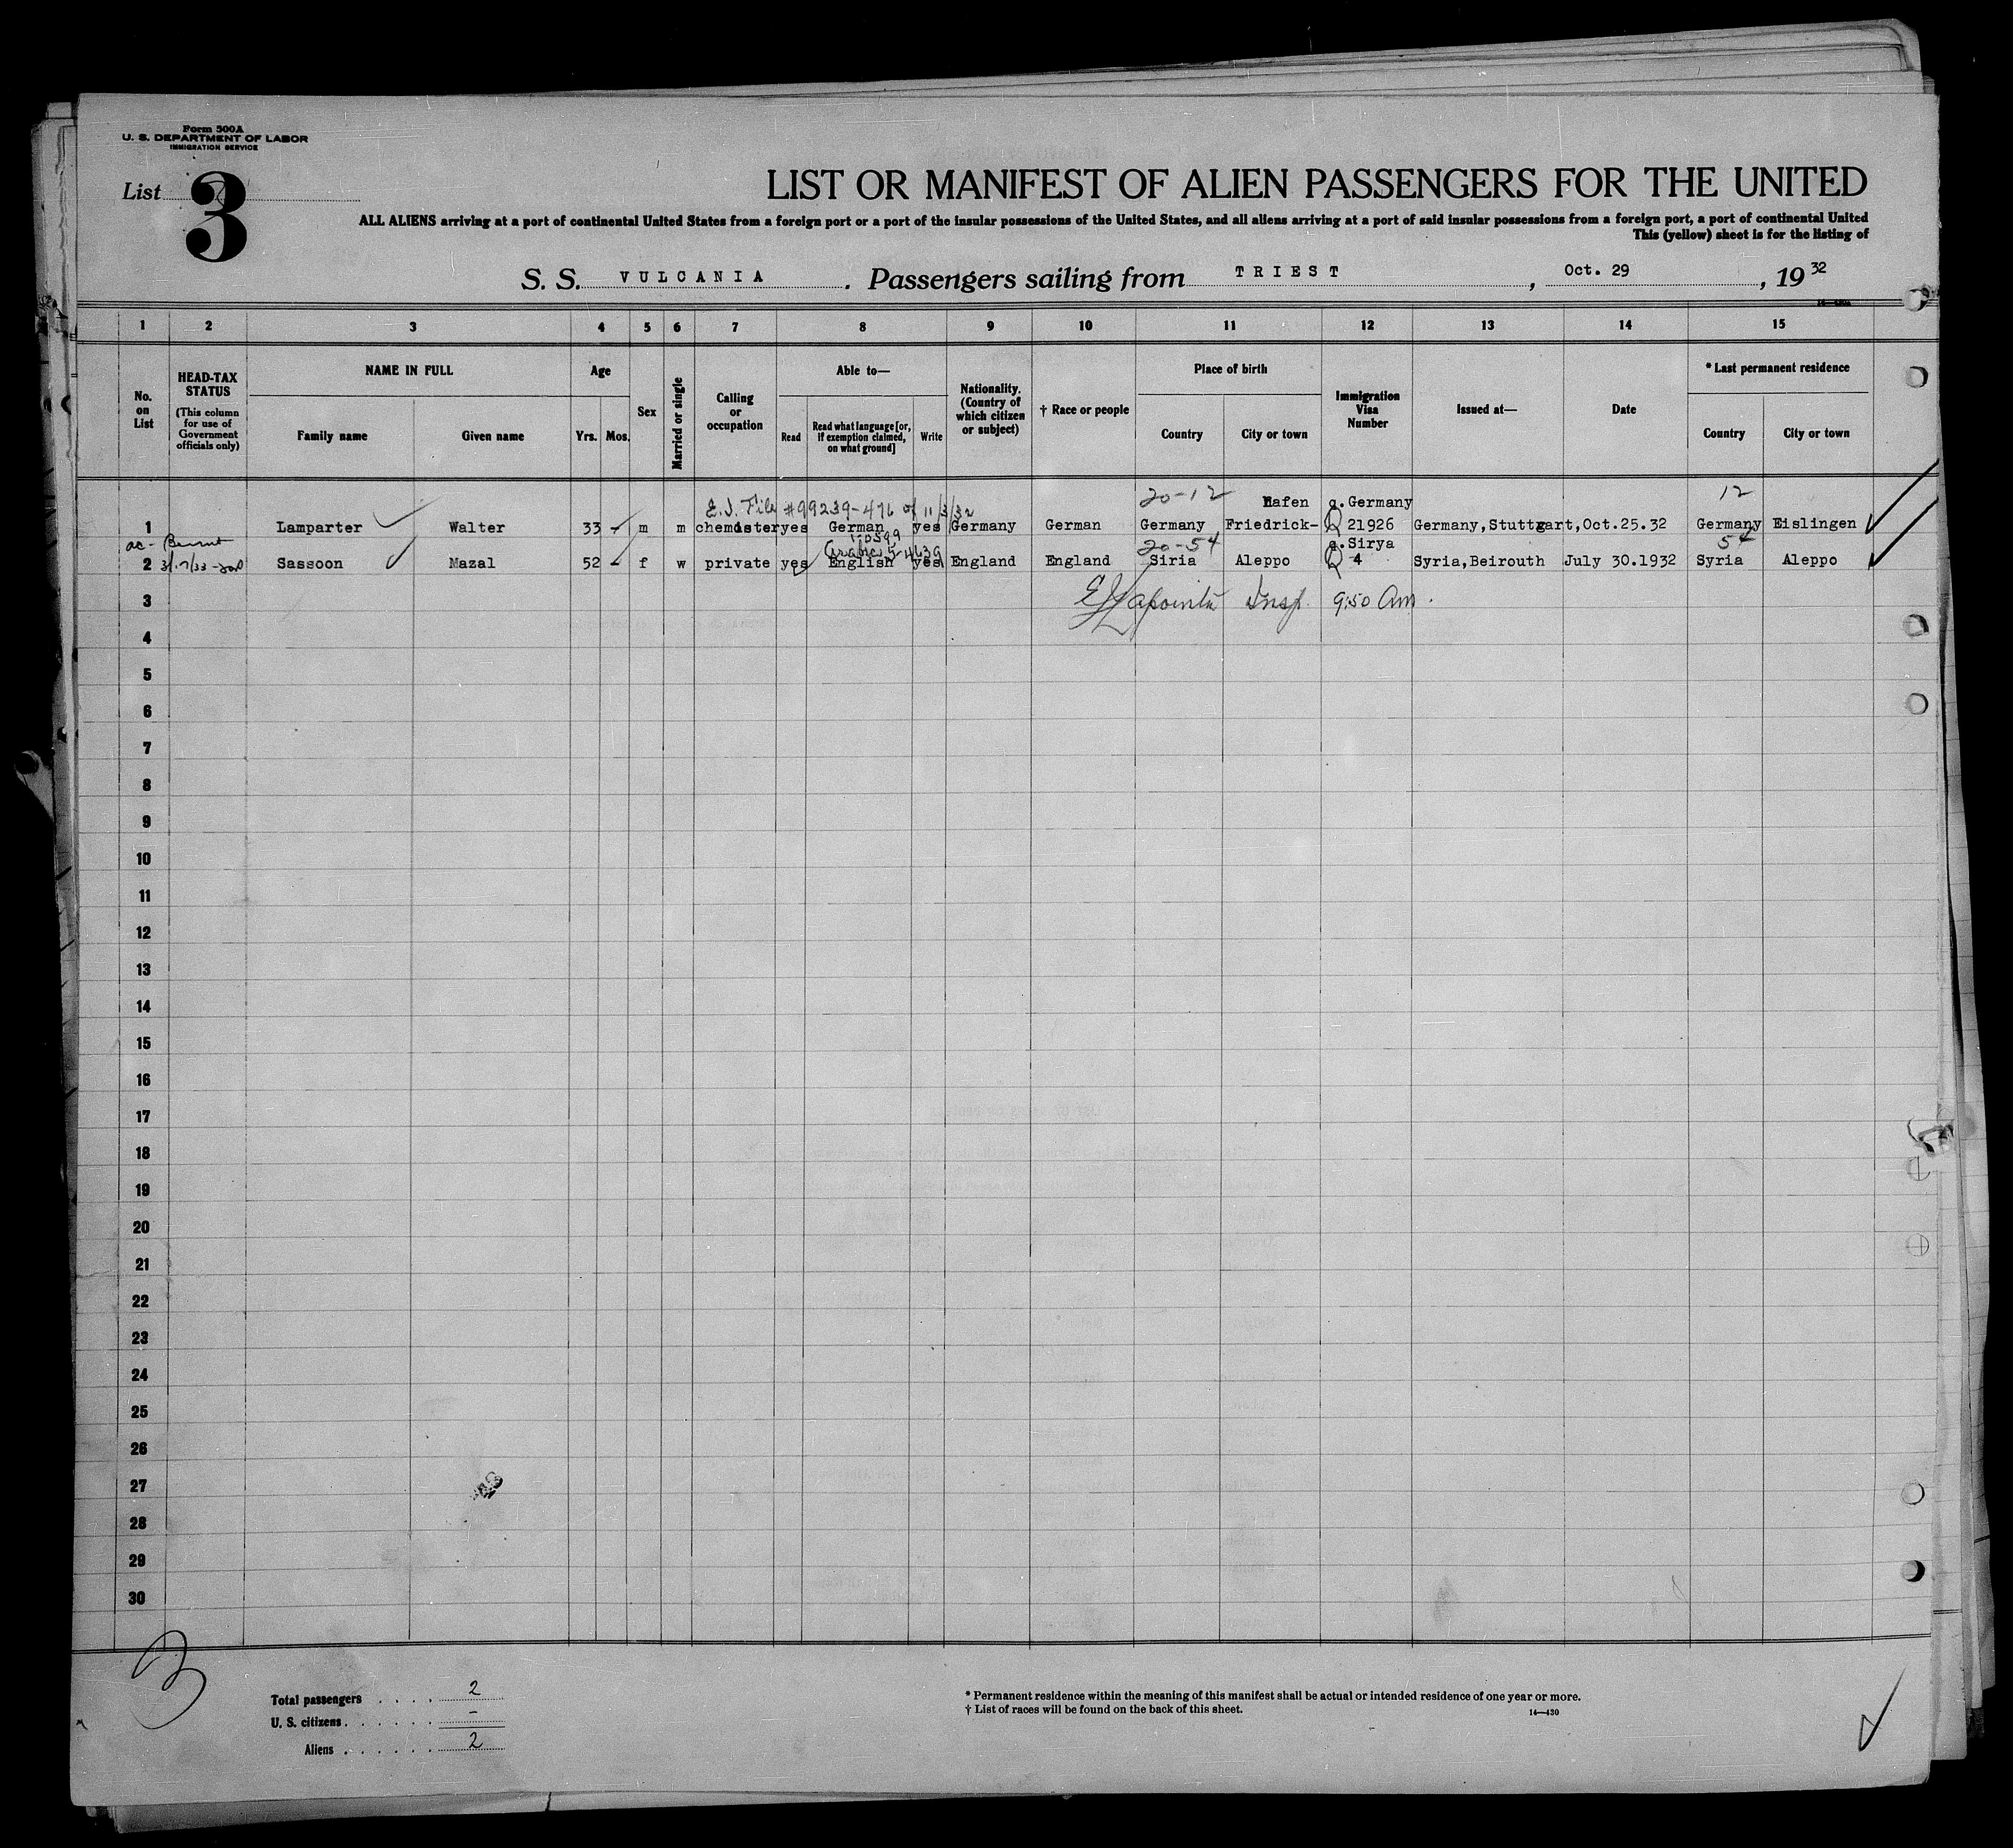 Form 500A
U. S. DEPARTMENT OF LABOR
IMMIGRATION SERVICE
List 3
LIST OR MANIFEST OF ALIEN PASSENGERS FOR THE UNITED
ALL ALIENS arriving at a port of continental United States from a foreign port or a port of the insular possessions of the United States, and all aliens arriving at a port of said insular possessions from a foreign port, a port of continental United
This (yellow) sheet is for the listing of
S. S. VULCANIA. Passengers sailing from TRIEST, Oct. 29, 1932
1 2 3 4 5 6 7 8 9 10 11 12 13 14 15
No. on List
HEAD-TAX STATUS
(This column for use of Government officials only)
NAME IN FULL
Family name
Given name
Age
Yrs. Mos.
Sex
Married or single
Calling or occupation
Able to—
Read
Read what language [or, if exemption claimed, on what ground]
Write
Nationality. (Country of which citizen or subject)
† Race or people
Place of birth
Country
City or town
Immigration Visa Number
Issued at—
Date
* Last permanent residence
Country
City or town
E.I. File #99239-476 of 11/3/32 20-12 Hafen q.Germany 12
1 Lamparter Walter 33 - m m chemister yes German yes Germany German Germany Friedrick- 21926 Germany,Stuttgart,Oct.25.32 Germany Eislingen
Beirut Arabic 20-54 q.Sirya 54
2 Sassoon Mazal 52 - f w private yes English yes England England Siria Aleppo 4 Syria,Beirouth July 30.1932 Syria Aleppo
3 Lapointe Insp. 9:50 Am.
4
5
6
7
8
9
10
11
12
13
14
15
16
17
18
19
20
21
22
23
24
25
26
27
28
29
30
3
Total passengers . . . . 2
U. S. citizens . . . . . . -
Aliens . . . . . . 2
* Permanent residence within the meaning of this manifest shall be actual or intended residence of one year or more.
† List of races will be found on the back of this sheet.
14—430